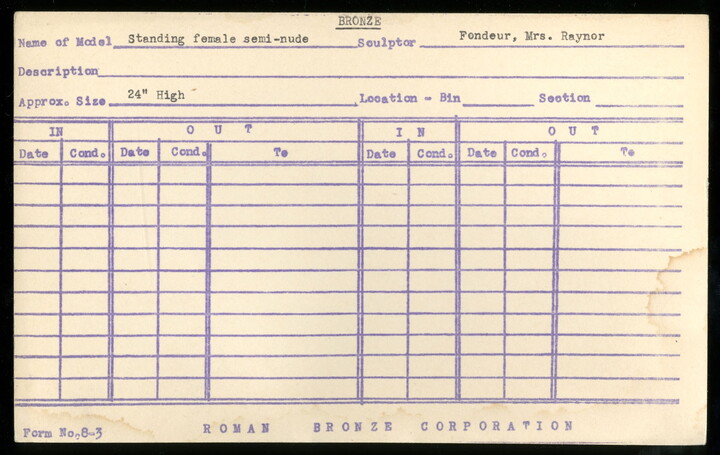 BRONZE
Name of Model Standing female semi-nude Sculptor Fondeur, Mrs. Raynor
Description
Approx. Size 24" High Location - Bin Section
IN OUT IN OUT
Date Cond. Date Cond. To Date Cond. Date Cond. To
Form No. 8-3 ROMAN BRONZE CORPORATION